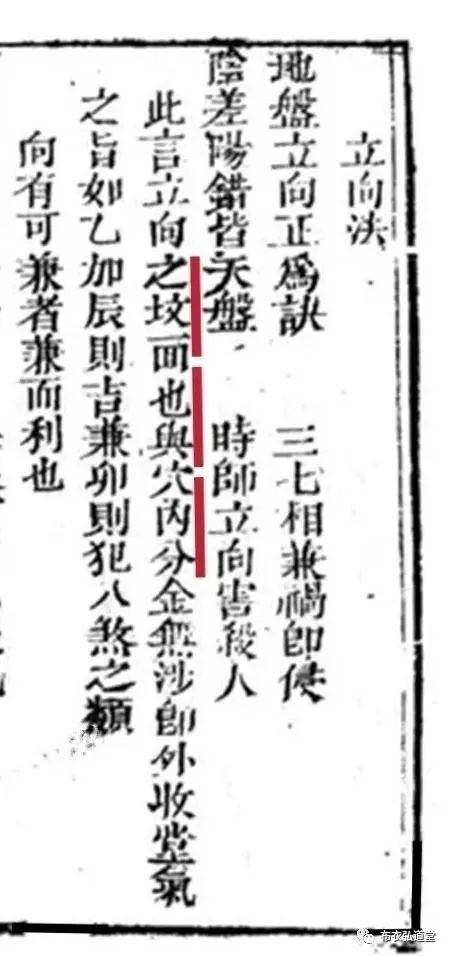 立向法
地盤立向正爲訣　三七相兼禍卽侵
陰差陽錯皆天盤　時師立向害殺人
此言立向之坟面也與穴內分金無涉卽外收堂氣
之旨如乙加辰則吉兼卯則犯八煞之類
向有可兼者兼而利也
布衣弘道堂